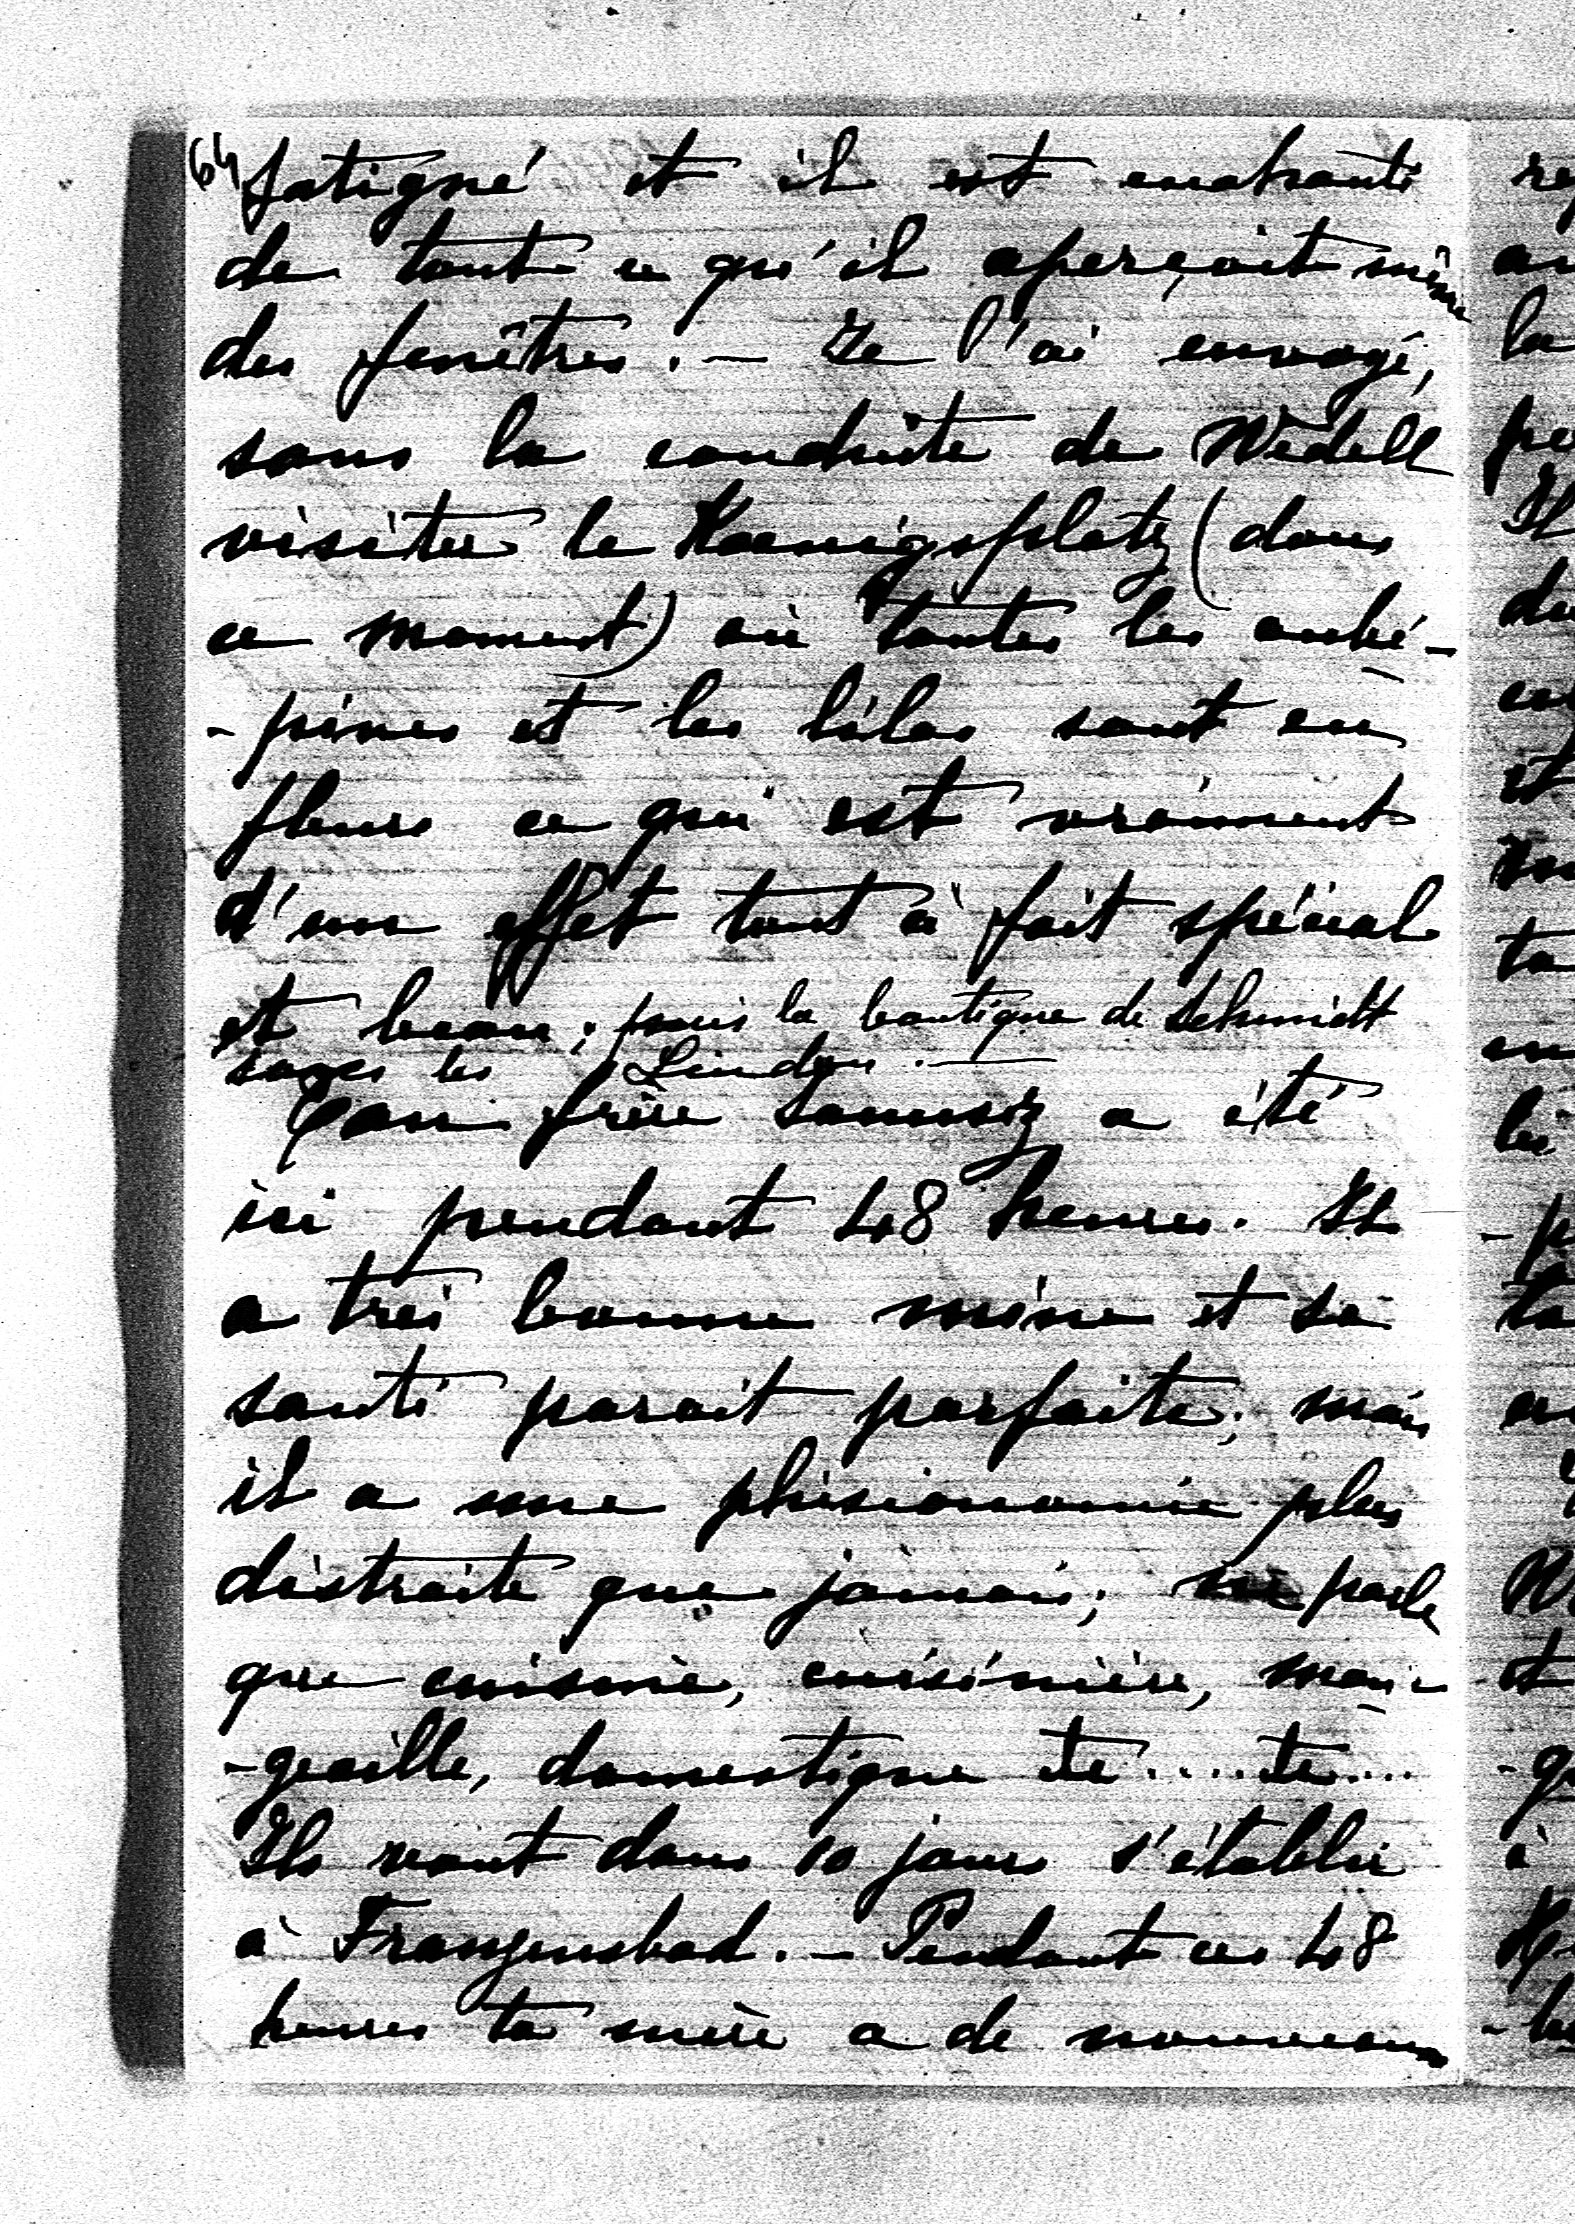 64
fatigué et il est enchanté
de tout ce qu'il aperçoit même
des fenêtres. — Je l'ai envoyé,
sous la conduite de Wedell
visiter le Koenigsplatz (dans
ce moment) où toutes les aubé-
-pines et les lilas sont en
fleurs ce qui est vraiment
d'un effet tout à fait spécial
et beau; puis la boutique de Schmidt
sous les Linden. —
Ton frère a été
ici pendant 48 heures. Il
a très bonne mine et sa
santé parait parfaite; mais
il a une phisionomie plus
distraite que jamais; ne parle
que cuisine, cuisinière, man-
-geaille, domestique etc.... etc....
Ils vont dans 10 jours s'établir
à Franzensbad. — Pendant ces 48
heures ta mère a de nouveau